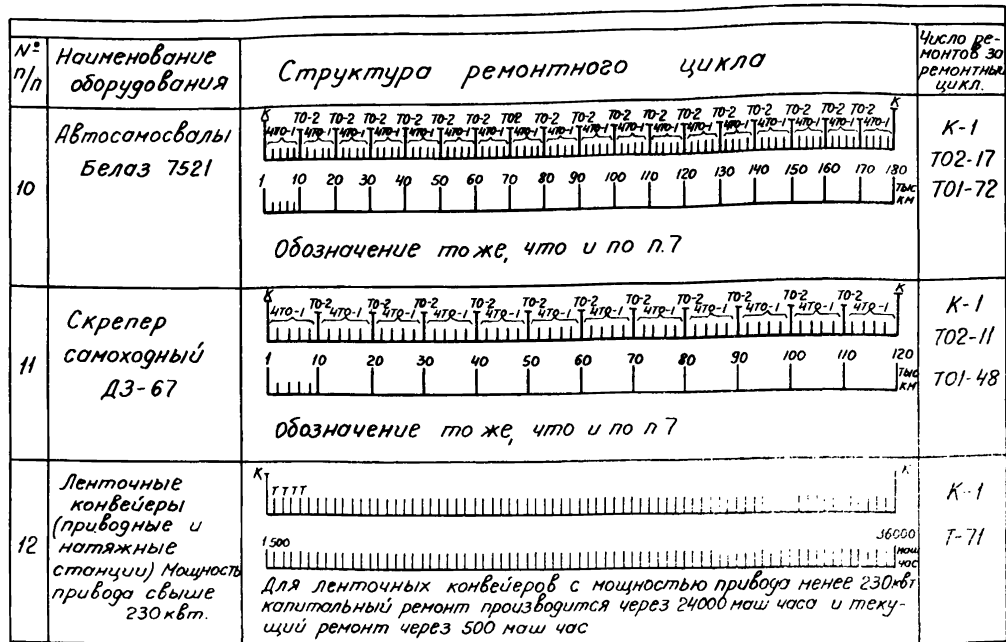 № п/п
Наименование оборудования
Структура ремонтного цикла
Число ре-
монтов за
ремонтный
цикл.
10
Автосамосвалы
Белаз 7521
К ТО-2 ТО-2 ТО-2 ТО-2 ТО-2 ТО-2 ТО2 ТО-2 ТО-2 ТО-2 ТО-2 ТО-2 ТО-2 ТО-2 ТО-2 ТО-2 ТО-2 К
4ТО-1 4ТО-1 4ТО-1 4ТО-1 4ТО-1 4ТО-1 4ТО-1 4ТО-1 4ТО-1 4ТО-1 4ТО-1 4ТО-1 4ТО-1 4ТО-1 4ТО-1 4ТО-1 4ТО-1 4ТО-1
1 10 20 30 40 50 60 70 80 90 100 110 120 130 140 150 160 170 180
тыс
км
Обозначение то же, что и по п.7
К-1
ТО2-17
ТО1-72
11
Скрепер
самоходный
ДЗ-67
К ТО-2 ТО-2 ТО-2 ТО-2 ТО-2 ТО-2 ТО-2 ТО-2 ТО-2 ТО-2 ТО-2 К
4ТО-1 4ТО-1 4ТО-1 4ТО-1 4ТО-1 4ТО-1 4ТО-1 4ТО-1 4ТО-1 4ТО-1 4ТО-1 4ТО-1
1 10 20 30 40 50 60 70 80 90 100 110 120
тыс
км
Обозначение то же, что и по п 7
К-1
ТО2-11
ТО1-48
12
Ленточные
конвейеры
(приводные и
натяжные
станции) Мощность
привода свыше
230 квт.
К Т Т Т Т К
1 500 36000
маш
час
Для ленточных конвейеров с мощностью привода менее 230 квт
капитальный ремонт производится через 24000 маш часа и теку-
щий ремонт через 500 маш час
К-1
Т-71